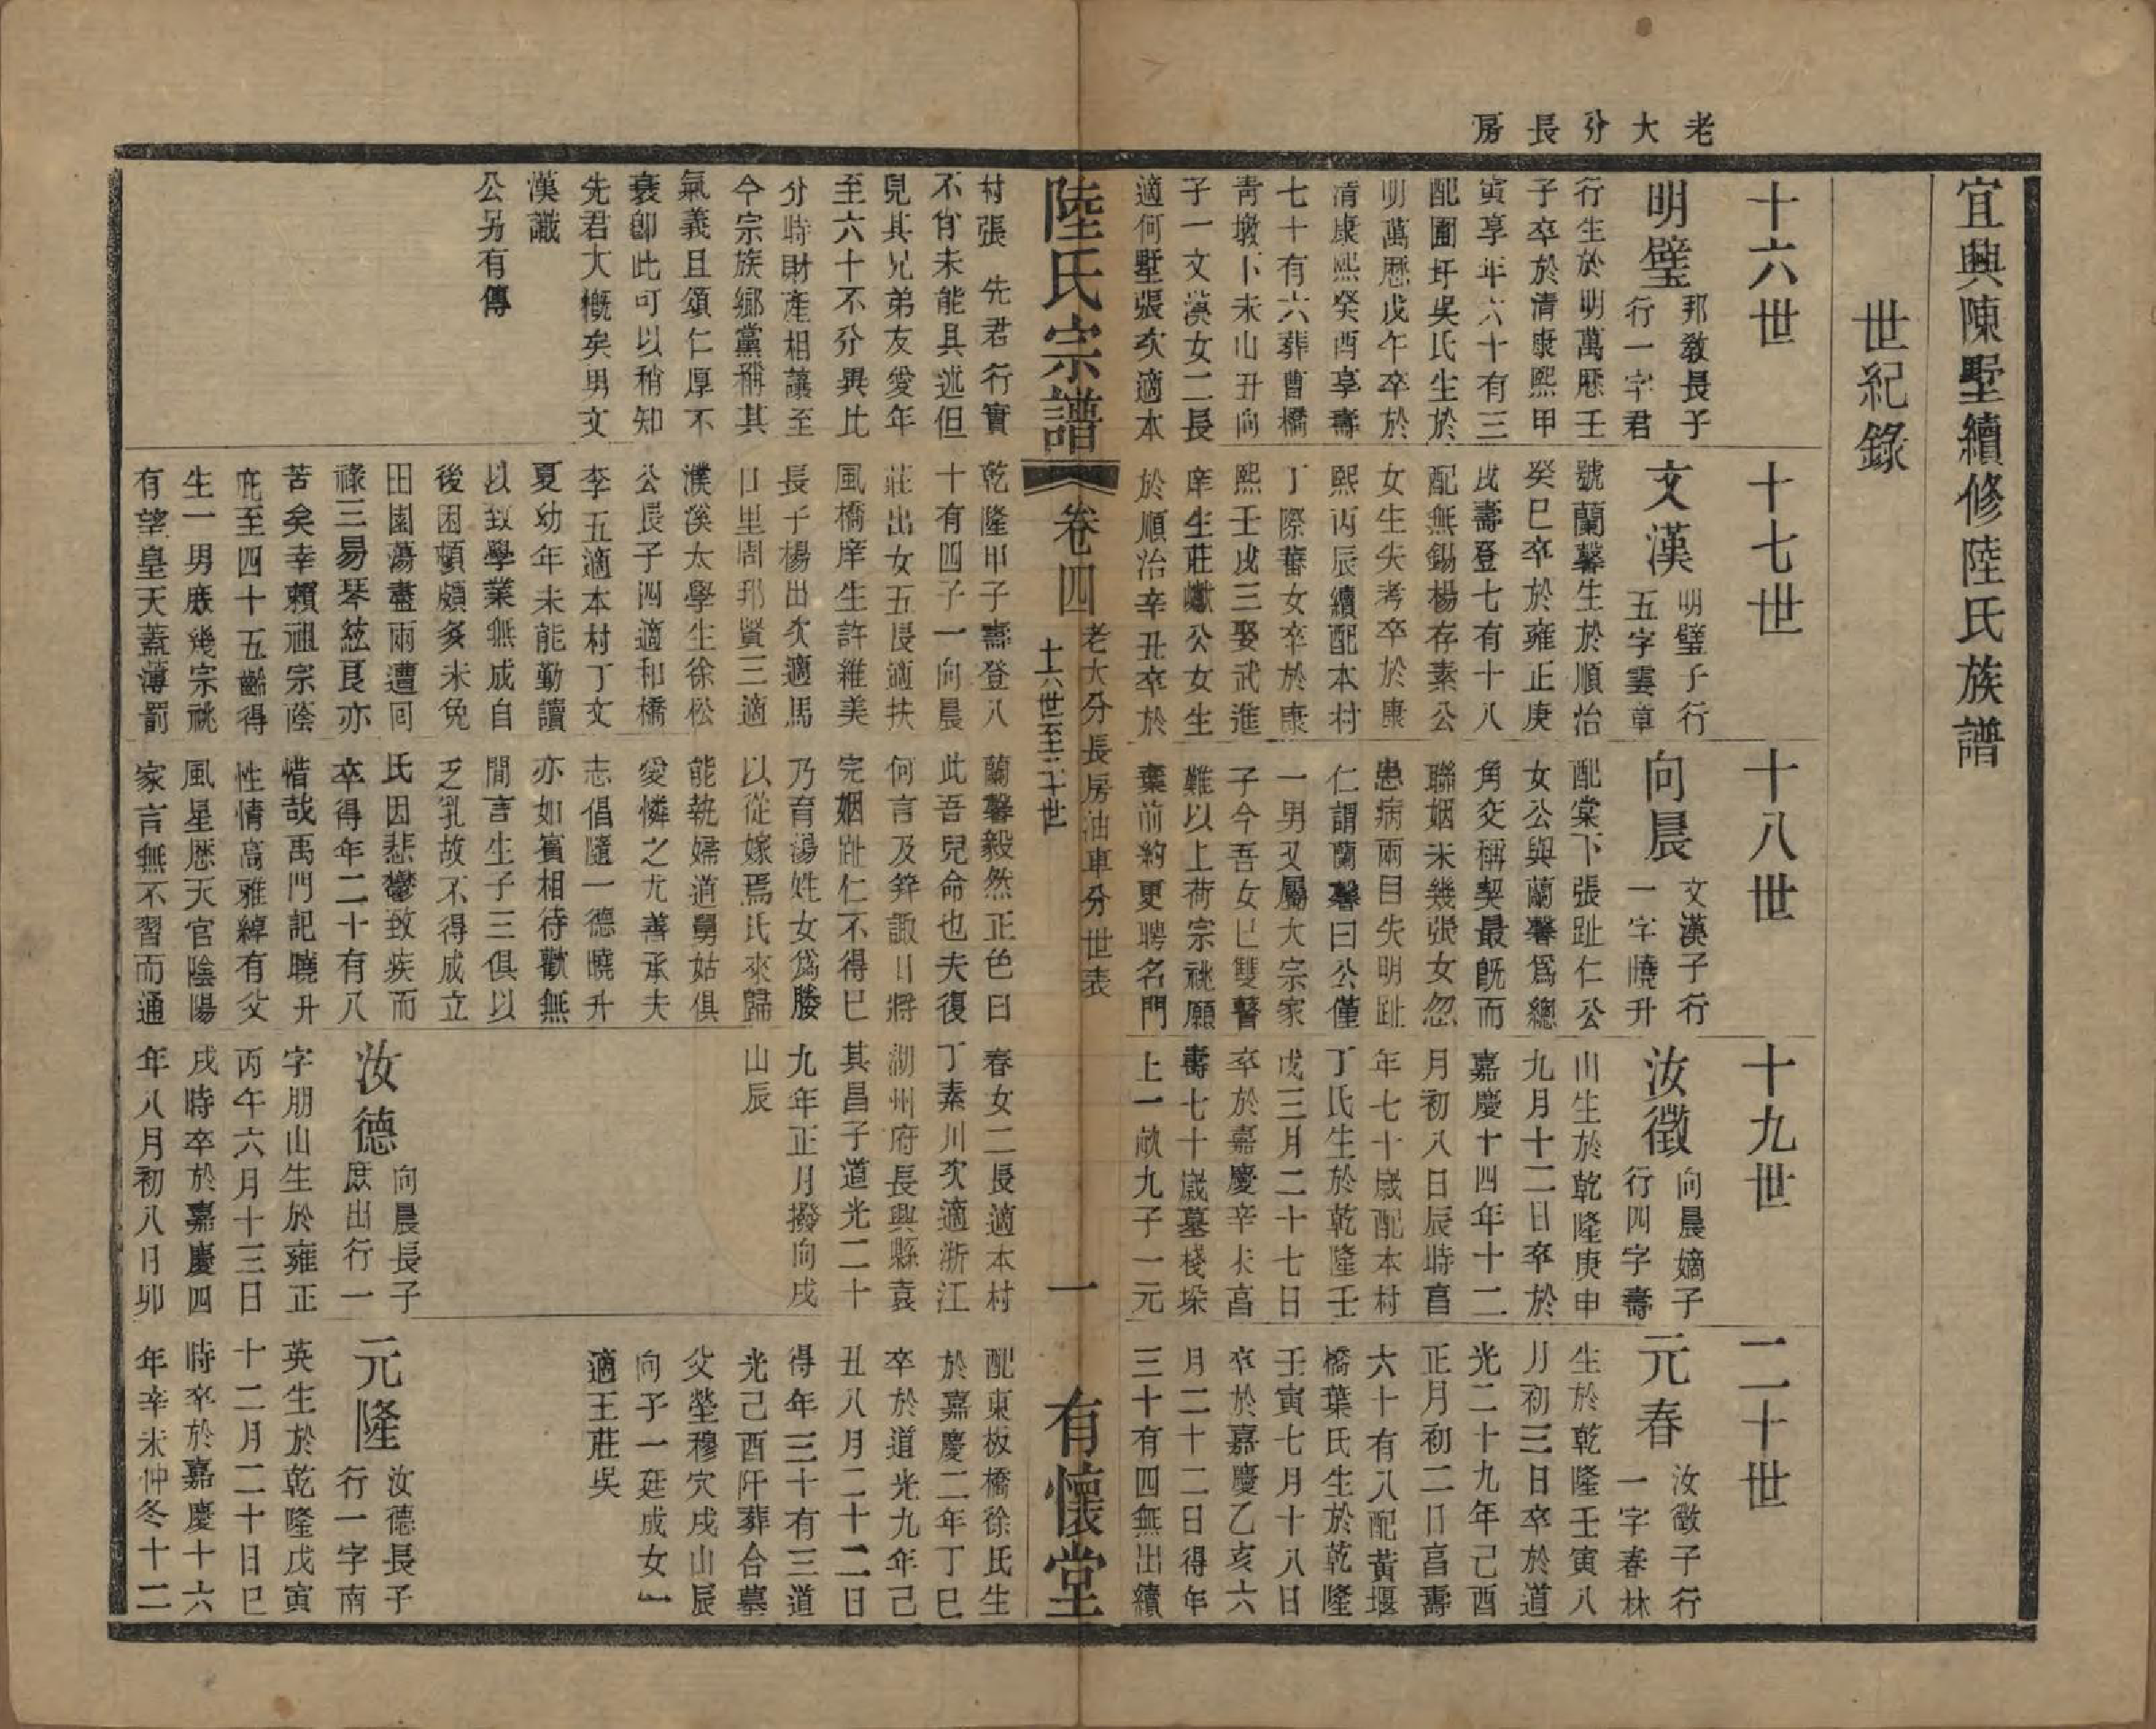 老大分長房
宜興陳墅續修陸氏族譜
世紀錄
十六世
明璧
邦敎長子
行一字君
行生於明萬歷壬
子卒於清康熙甲
寅享年六十有三
配圖圩吳氏生於
明萬歷戊午卒於
清康熙癸酉享壽
七十有六葬曹橋
靑墩卜未山丑向
子一文漢女二長
適何墅張次適本
村張 先君行實
不肖未能具述但
見其兄弟友愛年
至六十不分異比
分時財產相讓至
今宗族鄉黨稱其
氣義且頌仁厚不
衰卽此可以稍知
先君大槪矣男文
漢識
公另有傳
十七世
文漢
明璧子行
五字雲章
號蘭馨生於順治
癸巳卒於雍正庚
戌壽登七有十八
配無錫楊存素公
女生失考卒於康
熙丙辰續配本村
丁際蕃女卒於康
熙壬戌三娶武進
庠生莊巘公女生
於順治辛丑卒於
乾隆甲子壽登八
十有四子一向晨
莊出女五長適扶
風橋庠生許維美
長子楊出次適馬
口里周邦賢三適
濮溪太學生徐松
公長子四適和橋
李五適本村丁文
夏幼年未能勤讀
以致學業無成自
後困頓頗多未免
田園蕩盡兩遭回
祿三易琴絃艮亦
苦矣幸賴祖宗蔭
庇至四十五齡得
生一男庶幾宗祧
有望皇天蓋薄罰
十八世
向晨
文漢子行
一字曉升
配棠下張趾仁公
女公與蘭馨爲總
角交稱契最旣而
聯姻未幾張女忽
患病兩目失明趾
仁謂蘭馨曰公僅
一男又屬大宗家
子今吾女已雙瞽
難以上荷宗祧願
棄前約更聘名門
蘭馨毅然正色曰
此吾兒命也夫復
何言及笄諏日將
完姻趾仁不得已
乃育湯姓女爲媵
以從嫁焉氏來歸
能執婦道舅姑俱
愛憐之尤善承夫
志倡隨一德曉升
亦如賓相待歡無
閒言生子三俱以
乏乳故不得成立
氏因悲鬱致疾而
卒得年二十有八
惜哉禹門記曉升
性情高雅綽有父
風星歷天官陰陽
家言無不習而通
十九世
汝徵
向晨嫡子
行四字壽
山生於乾隆庚申
九月十二日卒於
嘉慶十四年十二
月初八日辰時亯
年七十歲配本村
丁氏生於乾隆壬
戌三月二十七日
卒於嘉慶辛未亯
壽七十歲墓棧垛
上一畝九子一元
春女二長適本村
丁素川次適浙江
湖州府長興縣袁
其昌子道光二十
九年正月撥向戌
山辰
汝德
向晨長子
庶出行一
字朋山生於雍正
丙午六月十三日
戌時卒於嘉慶四
年八月初八日卯
二十世
元春
汝徵子行
一字春林
生於乾隆壬寅八
月初三日卒於道
光二十九年己酉
正月初二日亯壽
六十有八配黃堰
橋葉氏生於乾隆
壬寅七月十八日
卒於嘉慶乙亥六
月二十二日得年
三十有四無出續
配東板橋徐氏生
於嘉慶二年丁巳
卒於道光九年己
丑八月二十二日
得年三十有三道
光己酉阡葬合墓
父塋穆穴戌山辰
向子一廷成女一
適王莊吳
元隆
汝德長子
行一字南
英生於乾隆戊寅
十二月二十日巳
時卒於嘉慶十六
年辛未仲冬十二
陸氏宗譜
卷四
老大分長房油車分世表
十六世至二十世
一
有懷堂